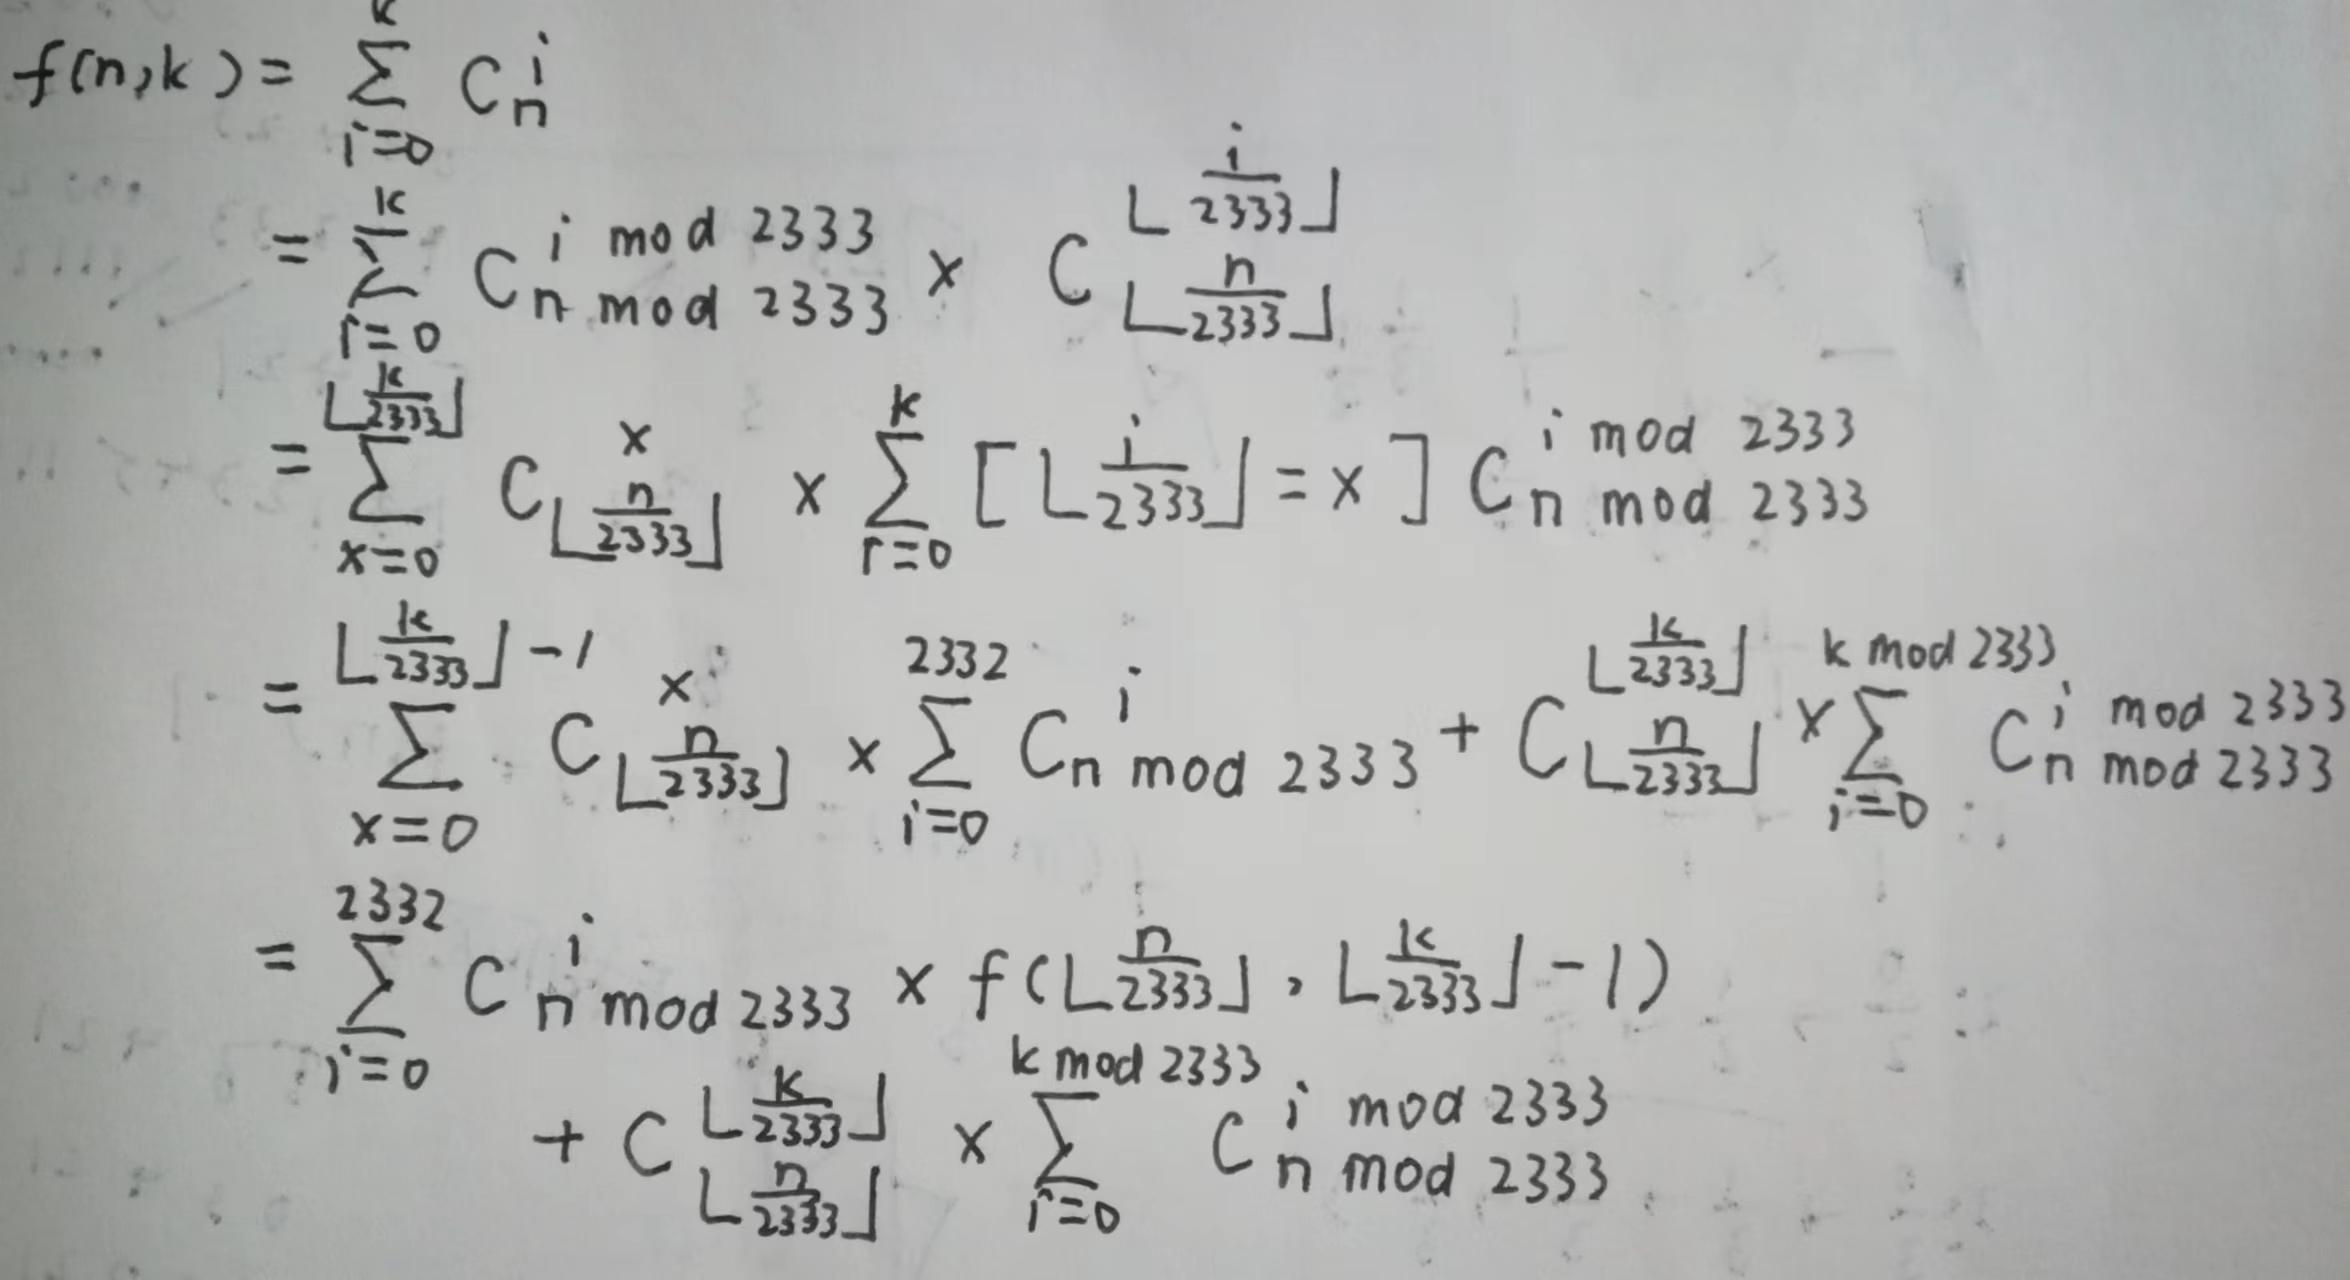 f(n,k) = \sum_{i=0}^{k} C_n^i
= \sum_{i=0}^{k} C_{n mod 2333}^{i mod 2333} × C_{⌊\frac{n}{2333}⌋}^{⌊\frac{i}{2333}⌋}
= \sum_{x=0}^{⌊\frac{k}{2333}⌋} C_{⌊\frac{n}{2333}⌋}^{x} × \sum_{i=0}^{k} [⌊\frac{i}{2333}⌋ = x] C_{n mod 2333}^{i mod 2333}
= \sum_{x=0}^{⌊\frac{k}{2333}⌋-1} C_{⌊\frac{n}{2333}⌋}^{x} × \sum_{i=0}^{2332} C_{n mod 2333}^{i} + C_{⌊\frac{n}{2333}⌋}^{⌊\frac{k}{2333}⌋} × \sum_{i=0}^{k mod 2333} C_{n mod 2333}^{i mod 2333}
= \sum_{i=0}^{2332} C_{n mod 2333}^{i} × f(⌊\frac{n}{2333}⌋, ⌊\frac{k}{2333}⌋-1)
+ C_{⌊\frac{n}{2333}⌋}^{⌊\frac{k}{2333}⌋} × \sum_{i=0}^{k mod 2333} C_{n mod 2333}^{i mod 2333}